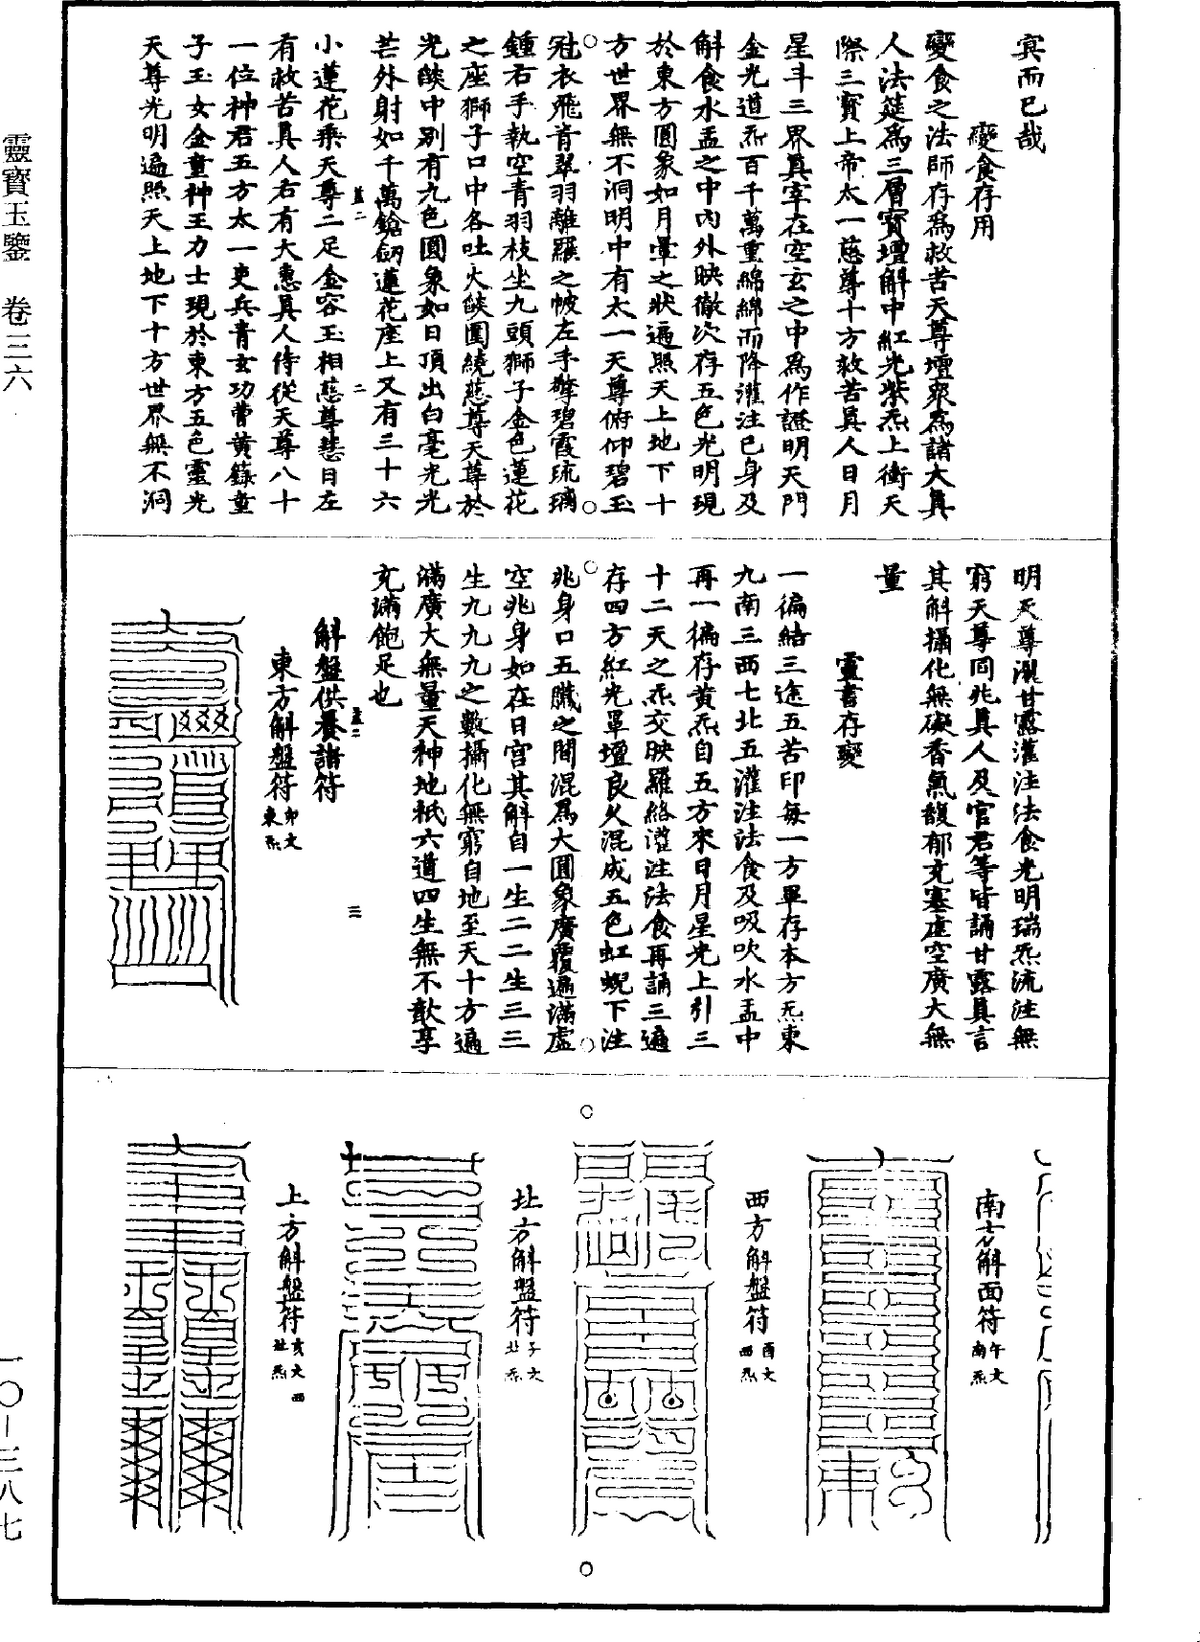 冥而已哉
變食存用
變食之法師存爲救苦天尊壇衆爲諸大眞
人法筵爲三層寶壇斛中紅光紫炁上衝天
際三寶上帝太一慈尊十方救苦眞人日月
星斗三界眞宰在空玄之中爲作證明天門
金光道炁百千萬重綿綿而降灌注已身及
斛食水盂之中內外映徹次存五色光明現
於東方圓象如月暈之狀遍照天上地下十
方世界無不洞明中有太一天尊俯仰碧玉
冠衣飛青翠羽離羅之帔左手擎碧霞琉璃
鍾右手執空青羽枝坐九頭獅子金色蓮花
之座獅子口中各吐火燄圍繞慈尊天尊於
光燄中別有九色圓象如日頂出白毫光光
芒外射如千萬鎗劒蓮花座上又有三十六
小蓮花乘天尊二足金容玉相慈尊悲目左
有救苦眞人右有大惠眞人侍從天尊八十
一位神君五方太一吏兵青玄功曹黃籙童
子玉女金童神王力士現於東方五色靈光
天尊光明遍照天上地下十方世界無不洞
明天尊灑甘露灌注法食光明瑞炁流注無
窮天尊同兆眞人及官君等皆誦甘露眞言
其斛攝化無礙香氣馥郁充塞虛空廣大無
量
靈書存變
一徧結三途五苦印每一方單存本方炁東
九南三西七北五灌注法食及吸吹水盂中
再一徧存黃炁自五方來日月星光上引三
十二天之炁交映羅絡灌注法食再誦三遍
存四方紅光罩壇良久混成五色虹蜺下注
兆身口五臟之間混爲大圓象廣覆遍滿虛
空兆身如在日宮其斛自一生二二生三三
生九九九之數攝化無窮自地至天十方遍
滿廣大無量天神地祇六道四生無不歆享
充滿飽足也
斛盤供養諸符
東方斛盤符 卯文 東炁
南方斛面符 午文 南炁
西方斛盤符 酉文 西炁
北方斛盤符 子文 北炁
上方斛盤符 亥文 北炁
靈寶玉鑒 卷二六
一〇—三八七